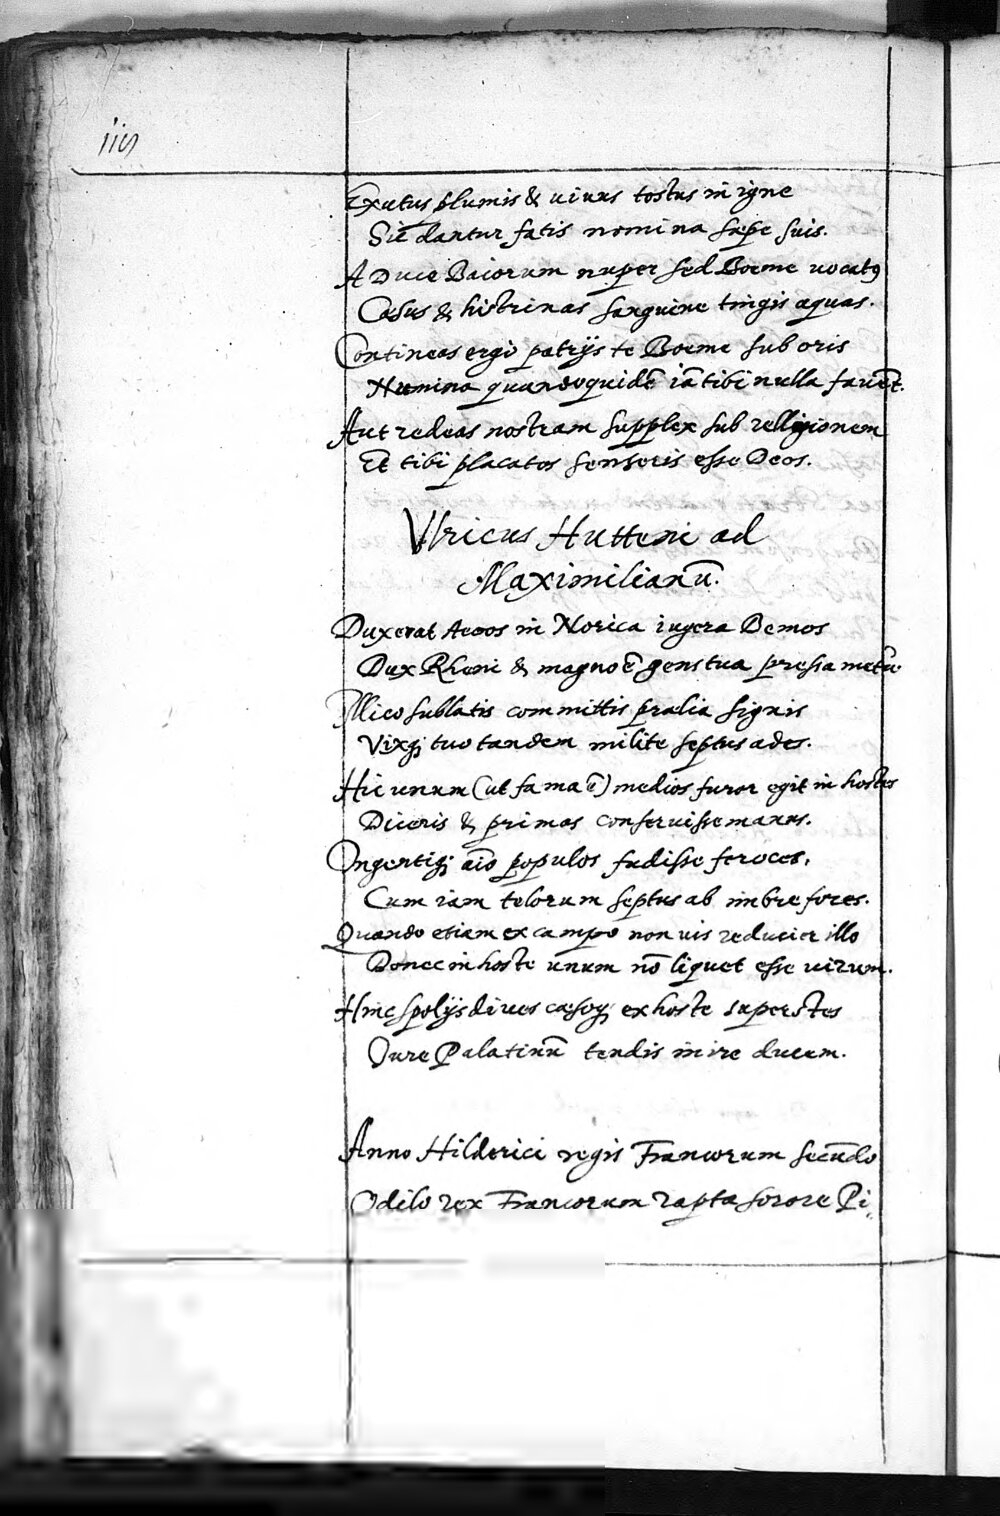 Exutus plumis & uiuus tostus in igne
Sic dantur fatis nomina sæpe suis.
A Duce Baiorum nuper sed Boeme uocatq
Cæsus & histrinas sanguine tingis aquas.
Contineas ergo patrijs te Boeme sub oris
Numina quandoquidē iā tibi nulla fauēt.
Aut redeas nostram supplex sub relligionem
Et tibi placatos senseris esse Deos.
Vlricus Hutteni ad
Maximilianū.
Duxerat in Norica iugera Bemos
Dux Rheni & magno ē gens tua pressa metu.
Illico sublatis committis prælia signis
Vixq; tuo tandem milite septus ades.
Hic unum (ut fama ē) medios furor egit in hostes
Diceris & primas conseruisse manus.
Ingentiq; aīo populos fudisse feroces,
Cum iam telorum septus ab imbre fores.
Quando etiam ex campo non uis reducier illo
Donec in hoste unum nō liquet esse uirum.
Hinc spolijs diues cæsoq; ex hoste superstes
Iure Palatinū tendis inire ducem.
Anno Hilderici regis Francorum secūdo
Odilo rex Francorum rapta sorore Pi,,